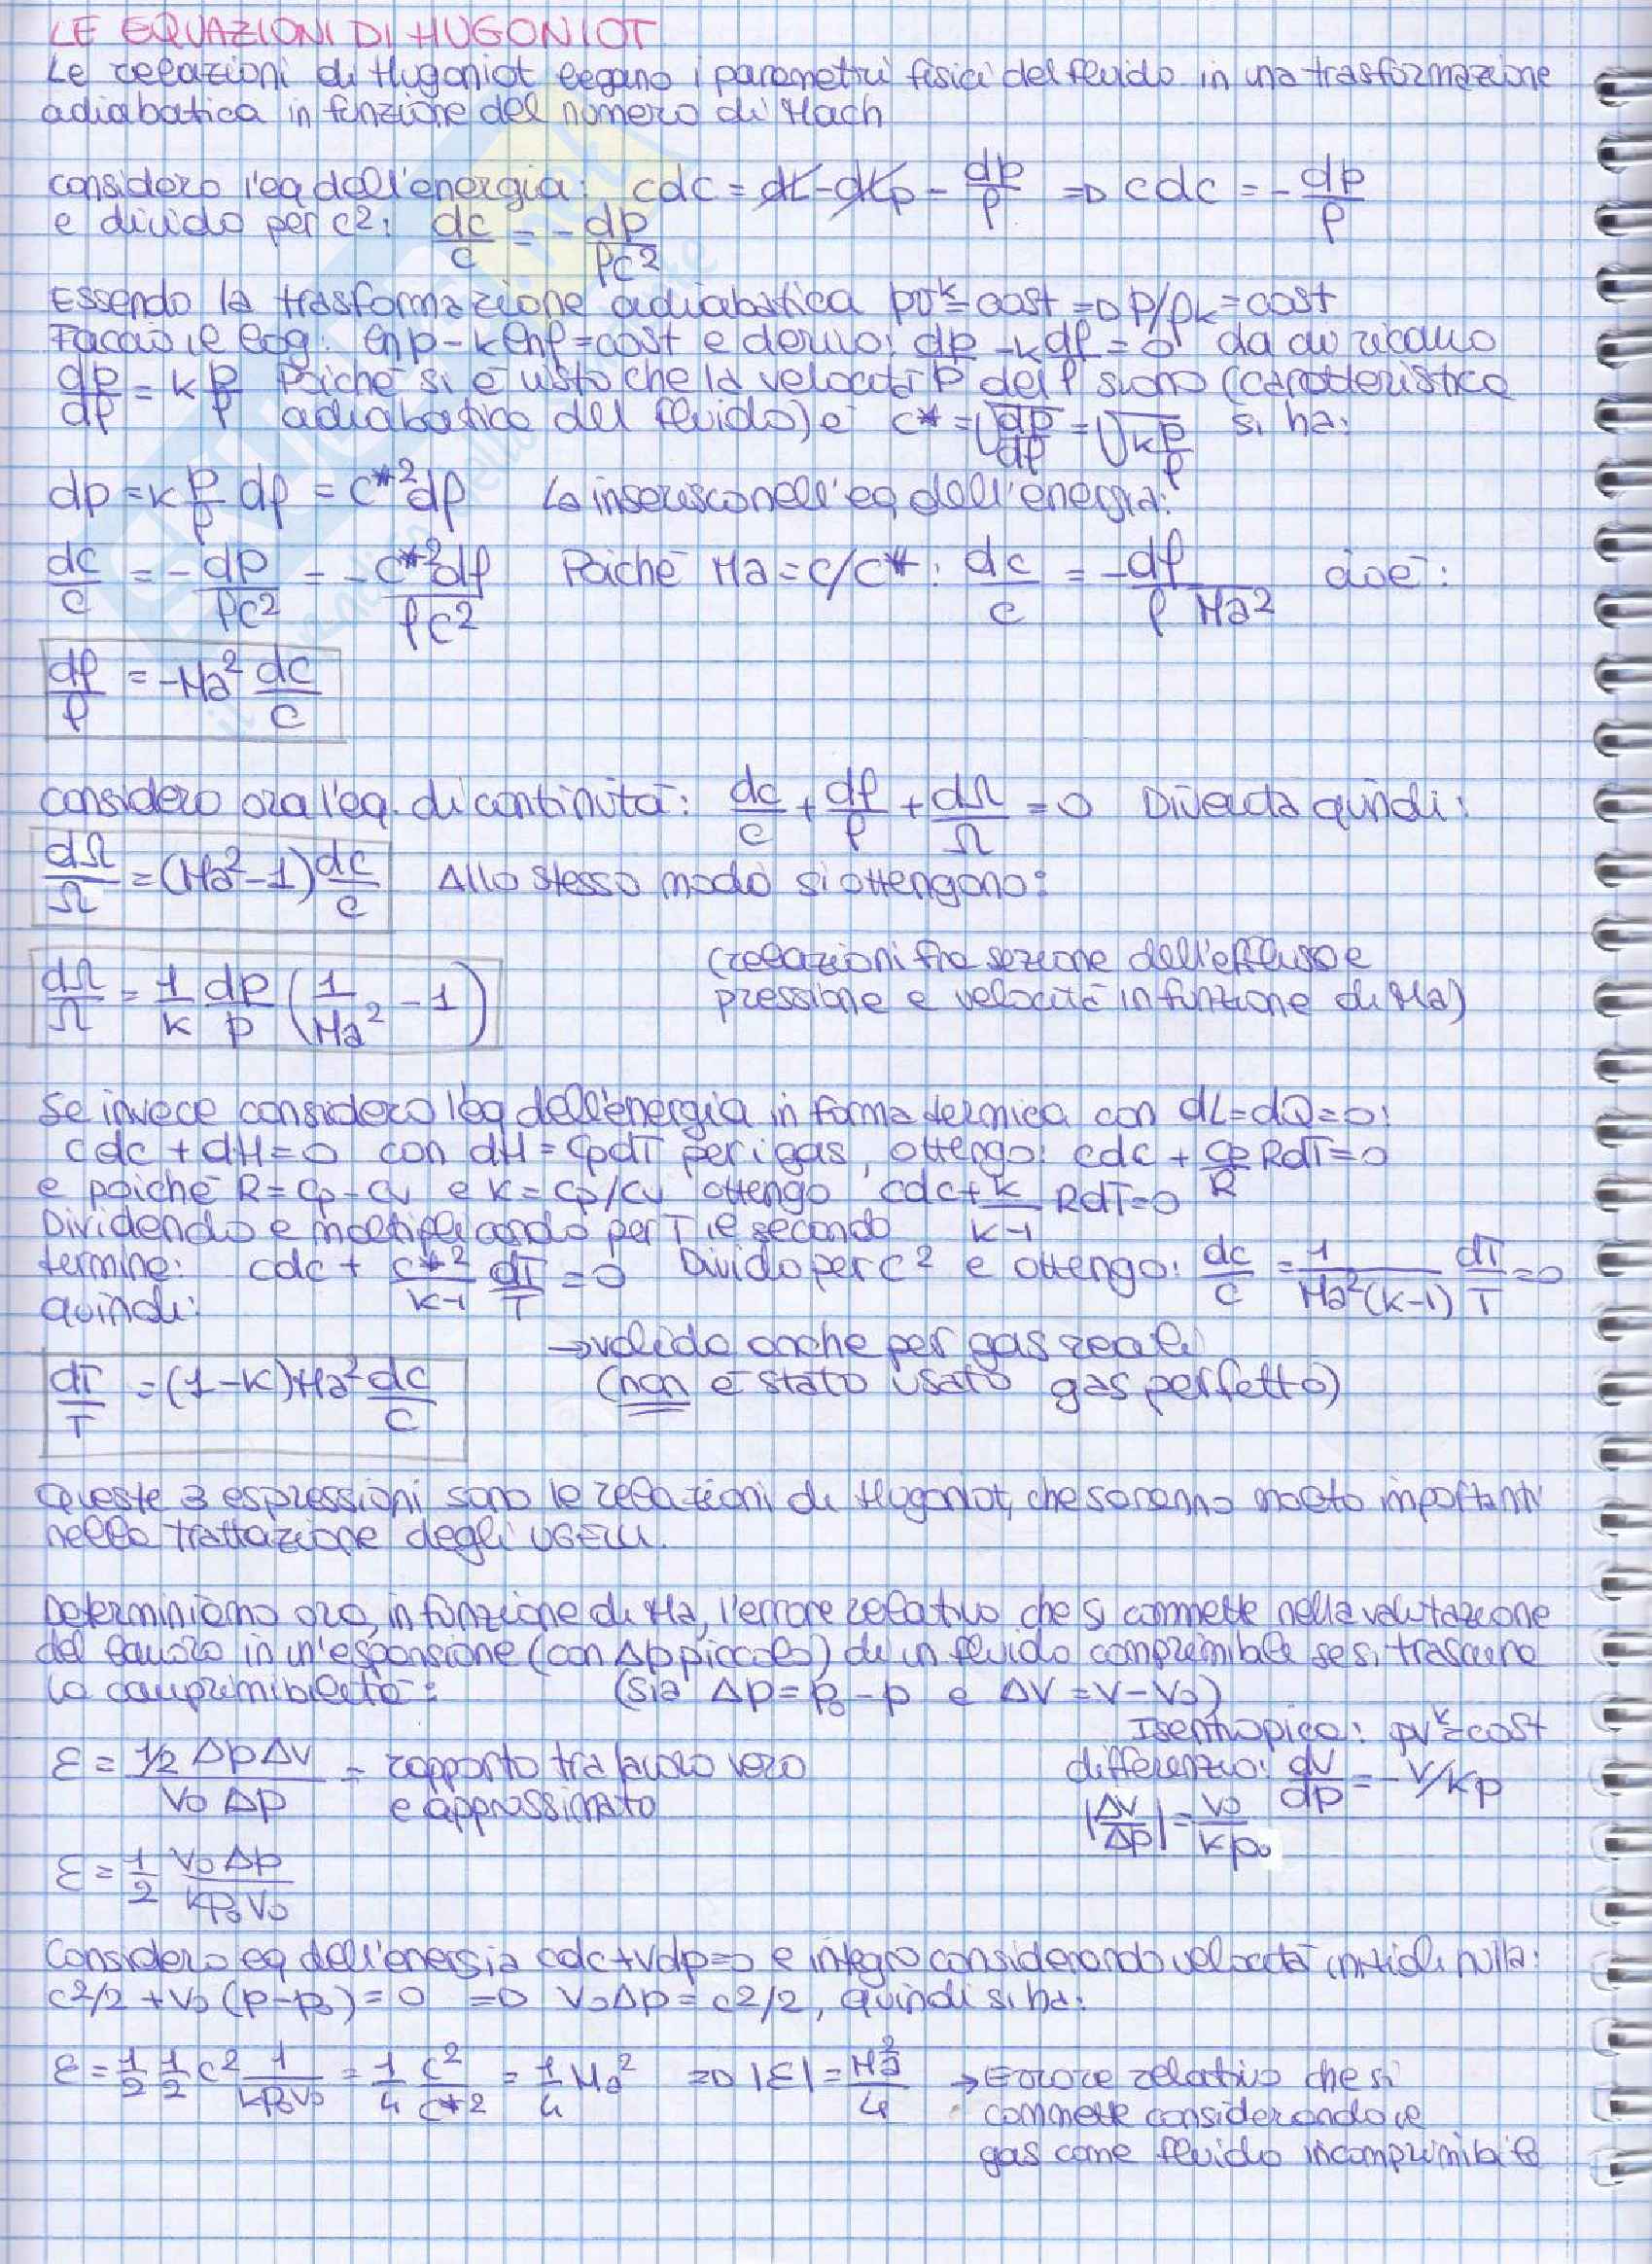 LE EQUAZIONI DI HUGONIOT
Le relazioni di Hugoniot legano i parametri fisici del fluido in una trasformazione
adiabatica in funzione del numero di Mach
considero l'eq dell'energia: cdc = dL - dLp - dp/ρ => cdc = - dp/ρ
e divido per c²: dc/c = - dp/ρc²
Essendo la trasformazione adiabatica pv^k = cost => p/ρ^k = cost
Faccio il log: lnp - klnρ = cost e derivo: dp/p - k dρ/ρ = 0 da cui ricavo
dp/dρ = k p/ρ Poiché si è visto che la velocità del suono (caratteristica
adiabatica del fluido) è c* = √dp/dρ = √k p/ρ si ha:
dp = k p/ρ dρ = c*² dρ Lo inserisco nell'eq dell'energia:
dc/c = - dp/ρc² = - c*²dρ/ρc² Poiché Ma = c/c*: dc/c = - dρ/ρ Ma² cioè:
dρ/ρ = -Ma² dc/c
considero ora l'eq. di continuità: dc/c + dρ/ρ + dΩ/Ω = 0 Diventa quindi:
dΩ/Ω = (Ma²-1) dc/c Allo stesso modo si ottengono:
dΩ/Ω = 1/k dp/p (1/Ma² - 1) (relazioni fra sezione dell'efflusso e
pressione e velocità in funzione di Ma)
Se invece considero l'eq dell'energia in forma termica con dL=dQ=0:
cdc + dH = 0 con dH = CpdT per i gas, ottengo: cdc + Cp/R RdT = 0
e poiché R = Cp - Cv e K = Cp/Cv ottengo cdc + k/k-1 RdT = 0
Dividendo e moltiplicando per T il secondo
termine: cdc + c*²/k-1 dT/T = 0 Divido per c² e ottengo: dc/c = 1/Ma²(k-1) dT/T = 0
quindi:
dT/T = (1-K)Ma² dc/c → valida anche per gas reali
(non è stato usato gas perfetto)
Queste 3 espressioni sono le relazioni di Hugoniot, che saranno molto importanti
nella trattazione degli UGELLI.
Determiniamo ora, in funzione di Ma, l'errore relativo che si commette nella valutazione
del lavoro in un'espansione (con Δp piccolo) di un fluido comprimibile se si trascura
la comprimibilità: (sia Δp = p₀ - p e Δv = v - v₀)
Isentropica: pv^k = cost
ε = 1/2 ΔpΔv / v₀ Δp = rapporto tra lavoro vero differenzio: dv/dp = - v/kp
e approssimato |Δv/Δp| = v₀/kp₀
ε = 1/2 v₀Δp/kp₀v₀
Considero eq dell'energia cdc + vdp = 0 e integro considerando velocità iniziali nulla:
c²/2 + v₀(p-p₀) = 0 => v₀Δp = c²/2, quindi si ha:
ε = 1/2 1/2 c² 1/kp₀v₀ = 1/4 c²/c*² = 1/4 Ma² => |ε| = Ma²/4 → Errore relativo che si
commette considerando il
gas come fluido incomprimibile